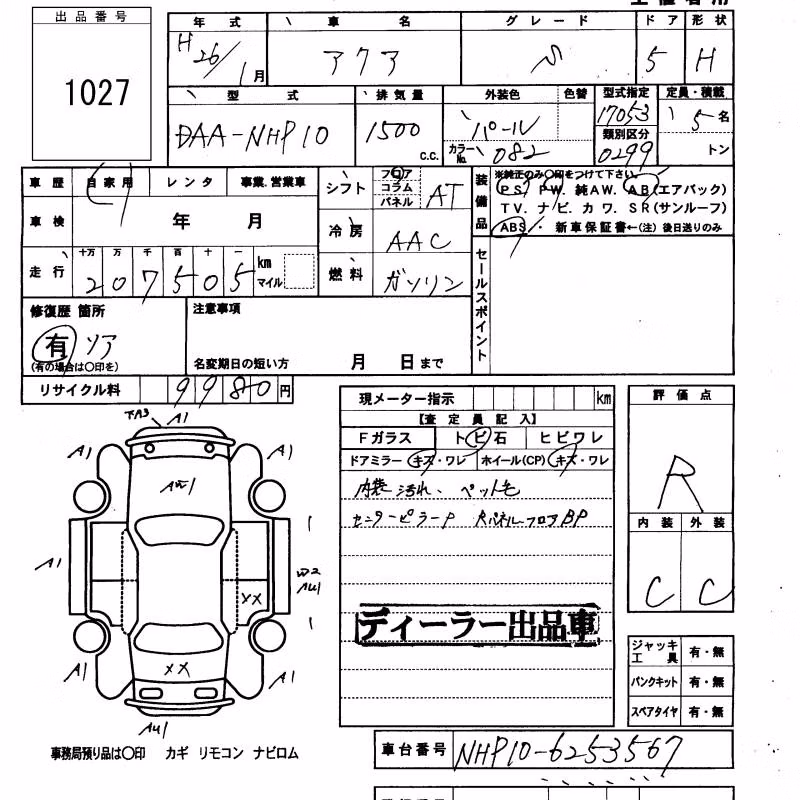 出品番号
1027
年式 車名 グレード ドア 形状
H26/1月 アクア S 5 H
型式 排気量 外装色 色替 型式指定 定員・積載
DAA-NHP10 1500 c.c. パール 17053 5名
カラーNo. 082 類別区分 0299 トン
車歴 自家用 レンタ 事業.営業車
シフト フロア コラム パネル AT
装備品 ※純正のみ○印をつけて下さい。
PS. PW. 純AW. AB(エアバック)
TV. ナビ. カワ. SR(サンルーフ)
ABS. 新車保証書←(注) 後日送りのみ
車検 年 月
冷房 AAC
走行 十万 万 千 百 十 一
207505 km マイル
燃料 ガソリン
セールスポイント
修復歴 箇所
有 リア
(有の場合は○印を)
注意事項
名変期日の短い方 月 日まで
リサイクル料 9980円
現メーター指示 km
【査定員記入】
Fガラス トビ石 ヒビワレ
ドアミラー キズ・ワレ ホイール(CP) キズ・ワレ
内装汚れ、ペット毛
センターピラーP Rパネル・フロアBP
ディーラー出品車
評価点
R
内装 外装
C C
ジャッキ工具 有・無
パンクキット 有・無
スペアタイヤ 有・無
下A3 A1
A1 A1
AW1
A1 W2
AU1
XX
A1 A1
XX
AU1
事務局預り品は○印 カギ リモコン ナビロム
車台番号 NHP10-6253567